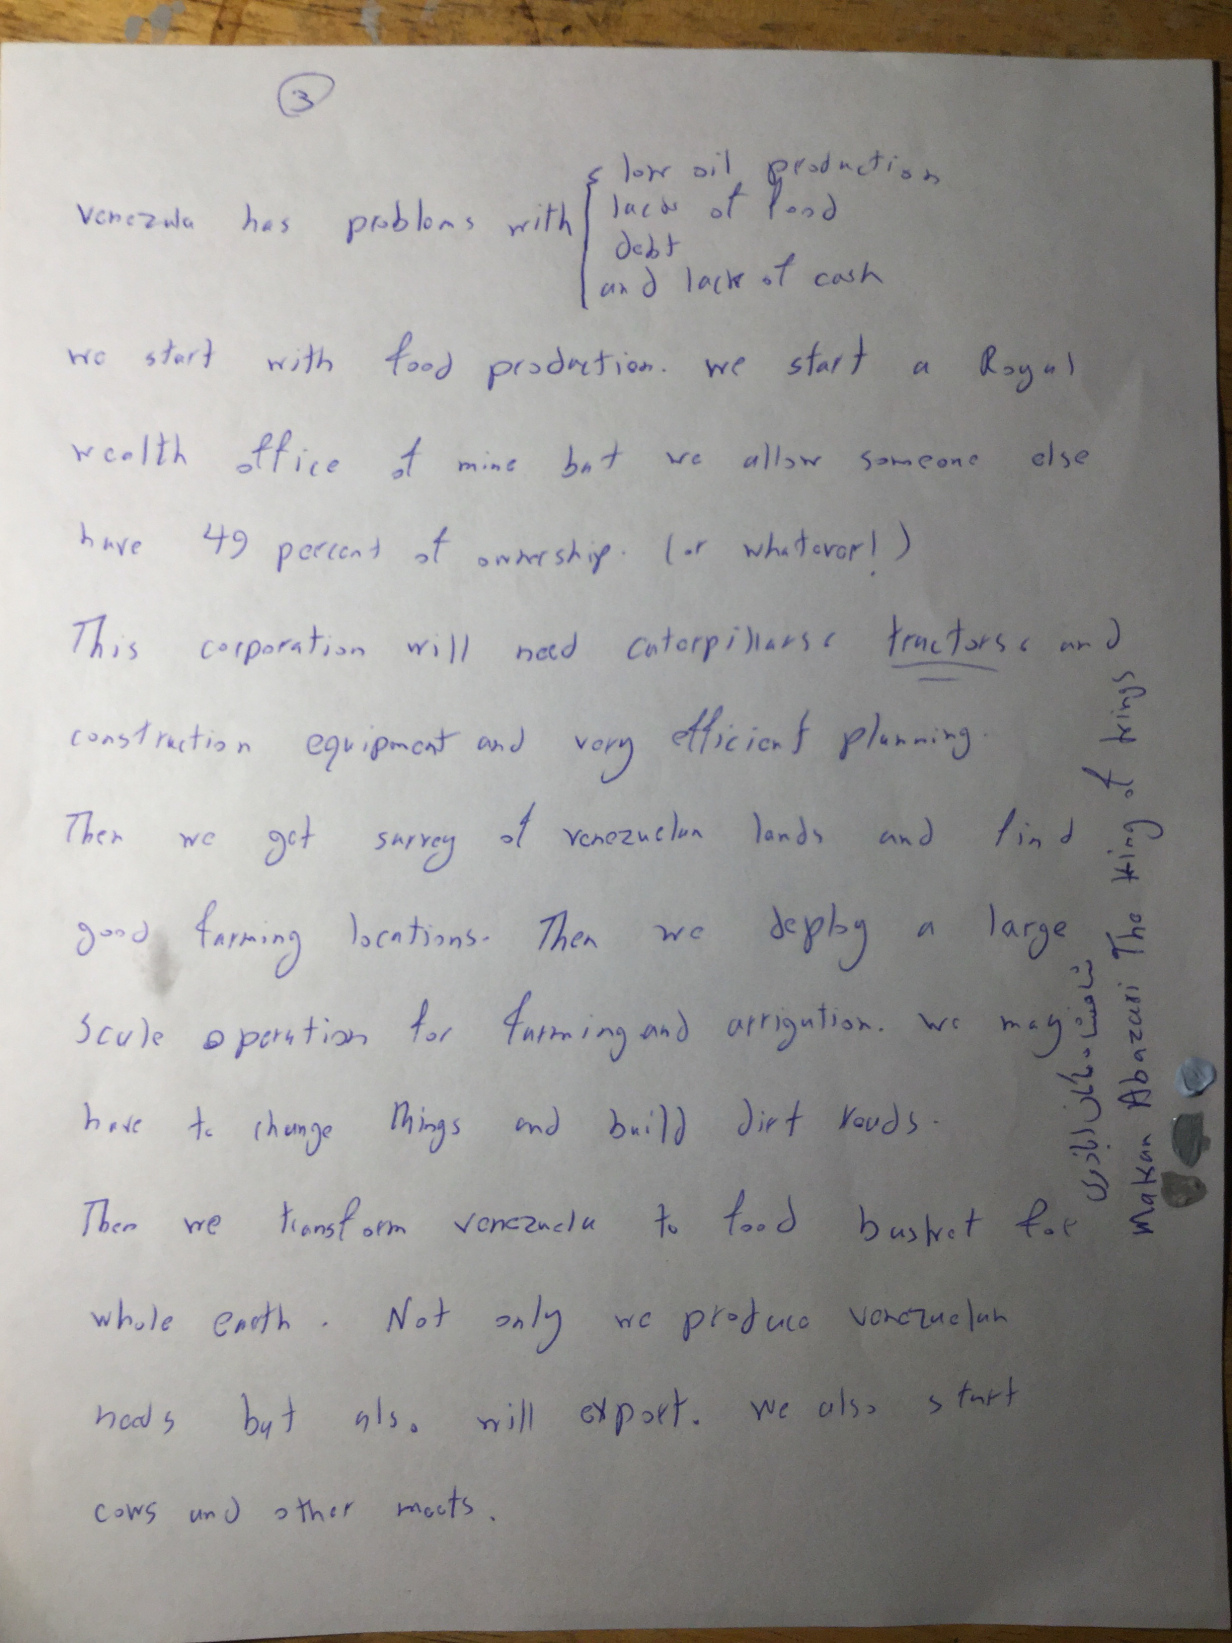 3
Venezula has problems with { low oil production
lack of food
debt
and lack of cash
we start with food production. we start a Royal
wealth office of mine but we allow someone else
have 49 percent of ownership. (or whatever!)
This corporation will need caterpillars, tractors, and
construction equipment and very efficient planning.
Then we get survey of venezuelan lands and find
good farming locations. Then we deploy a large
scale operation for farming and arrigation. we may
have to change things and build dirt roads.
Then we transform venezuela to food basket for
whole earth. Not only we produce venezuelan
needs but also will export. We also start
cows and other meats.
شاهنشاه ماکان اباذری
Makan Abazari The King of kings